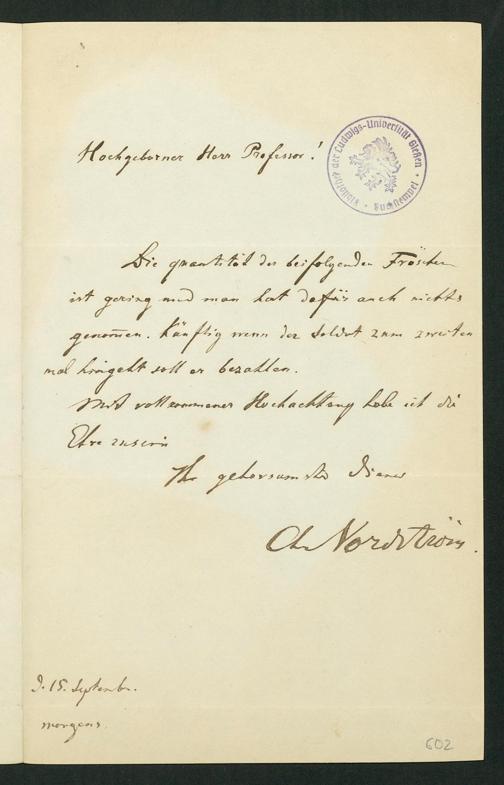 Hochgeborner Herr Professor!
Bibliothek der Ludwigs-Universität Gießen
Die quantität der beifolgenden Fröschen
ist gering und man hat dafür auch nichts
genom̄en. Künftig wenn der Soldat zum zweiten
mal hingeht soll er bezahlen.
Mit vollkommener Hochachtung habe ich die
Ehre zu sein
Ihr gehorsamster Diener
Ch. Nordström.
d. 15. Septembr.
morgens.
602